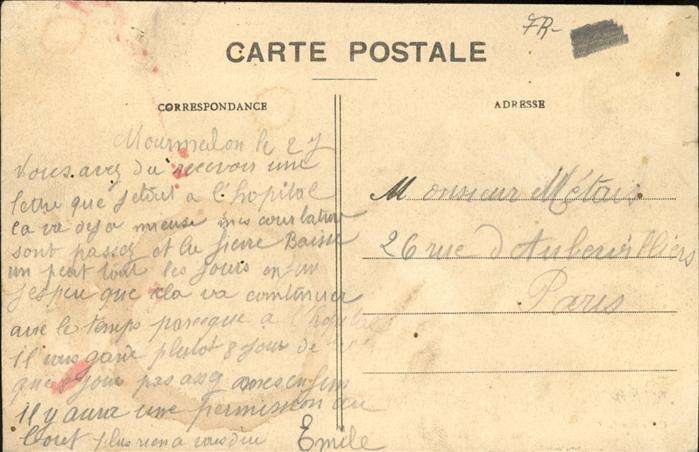 FR-
CARTE POSTALE
CORRESPONDANCE
ADRESSE
Mourmelon le 27
Vous avez du recevoir une
letre que jetais a l'hopital
ca va deja mieuse mes courbature
sont passez et la fievre Baisse
un peut tout les jours enfin
jesper que cela va comtinuer
avec le temps parceque a l'hopital
Il vous garde plutot 8 jour de
que 8 jour pas assez enfin
Il y aura une permission au
bout plus rien a vous dire Emile
Monsieur Métais
26 rue d'Aubervilliers
Paris